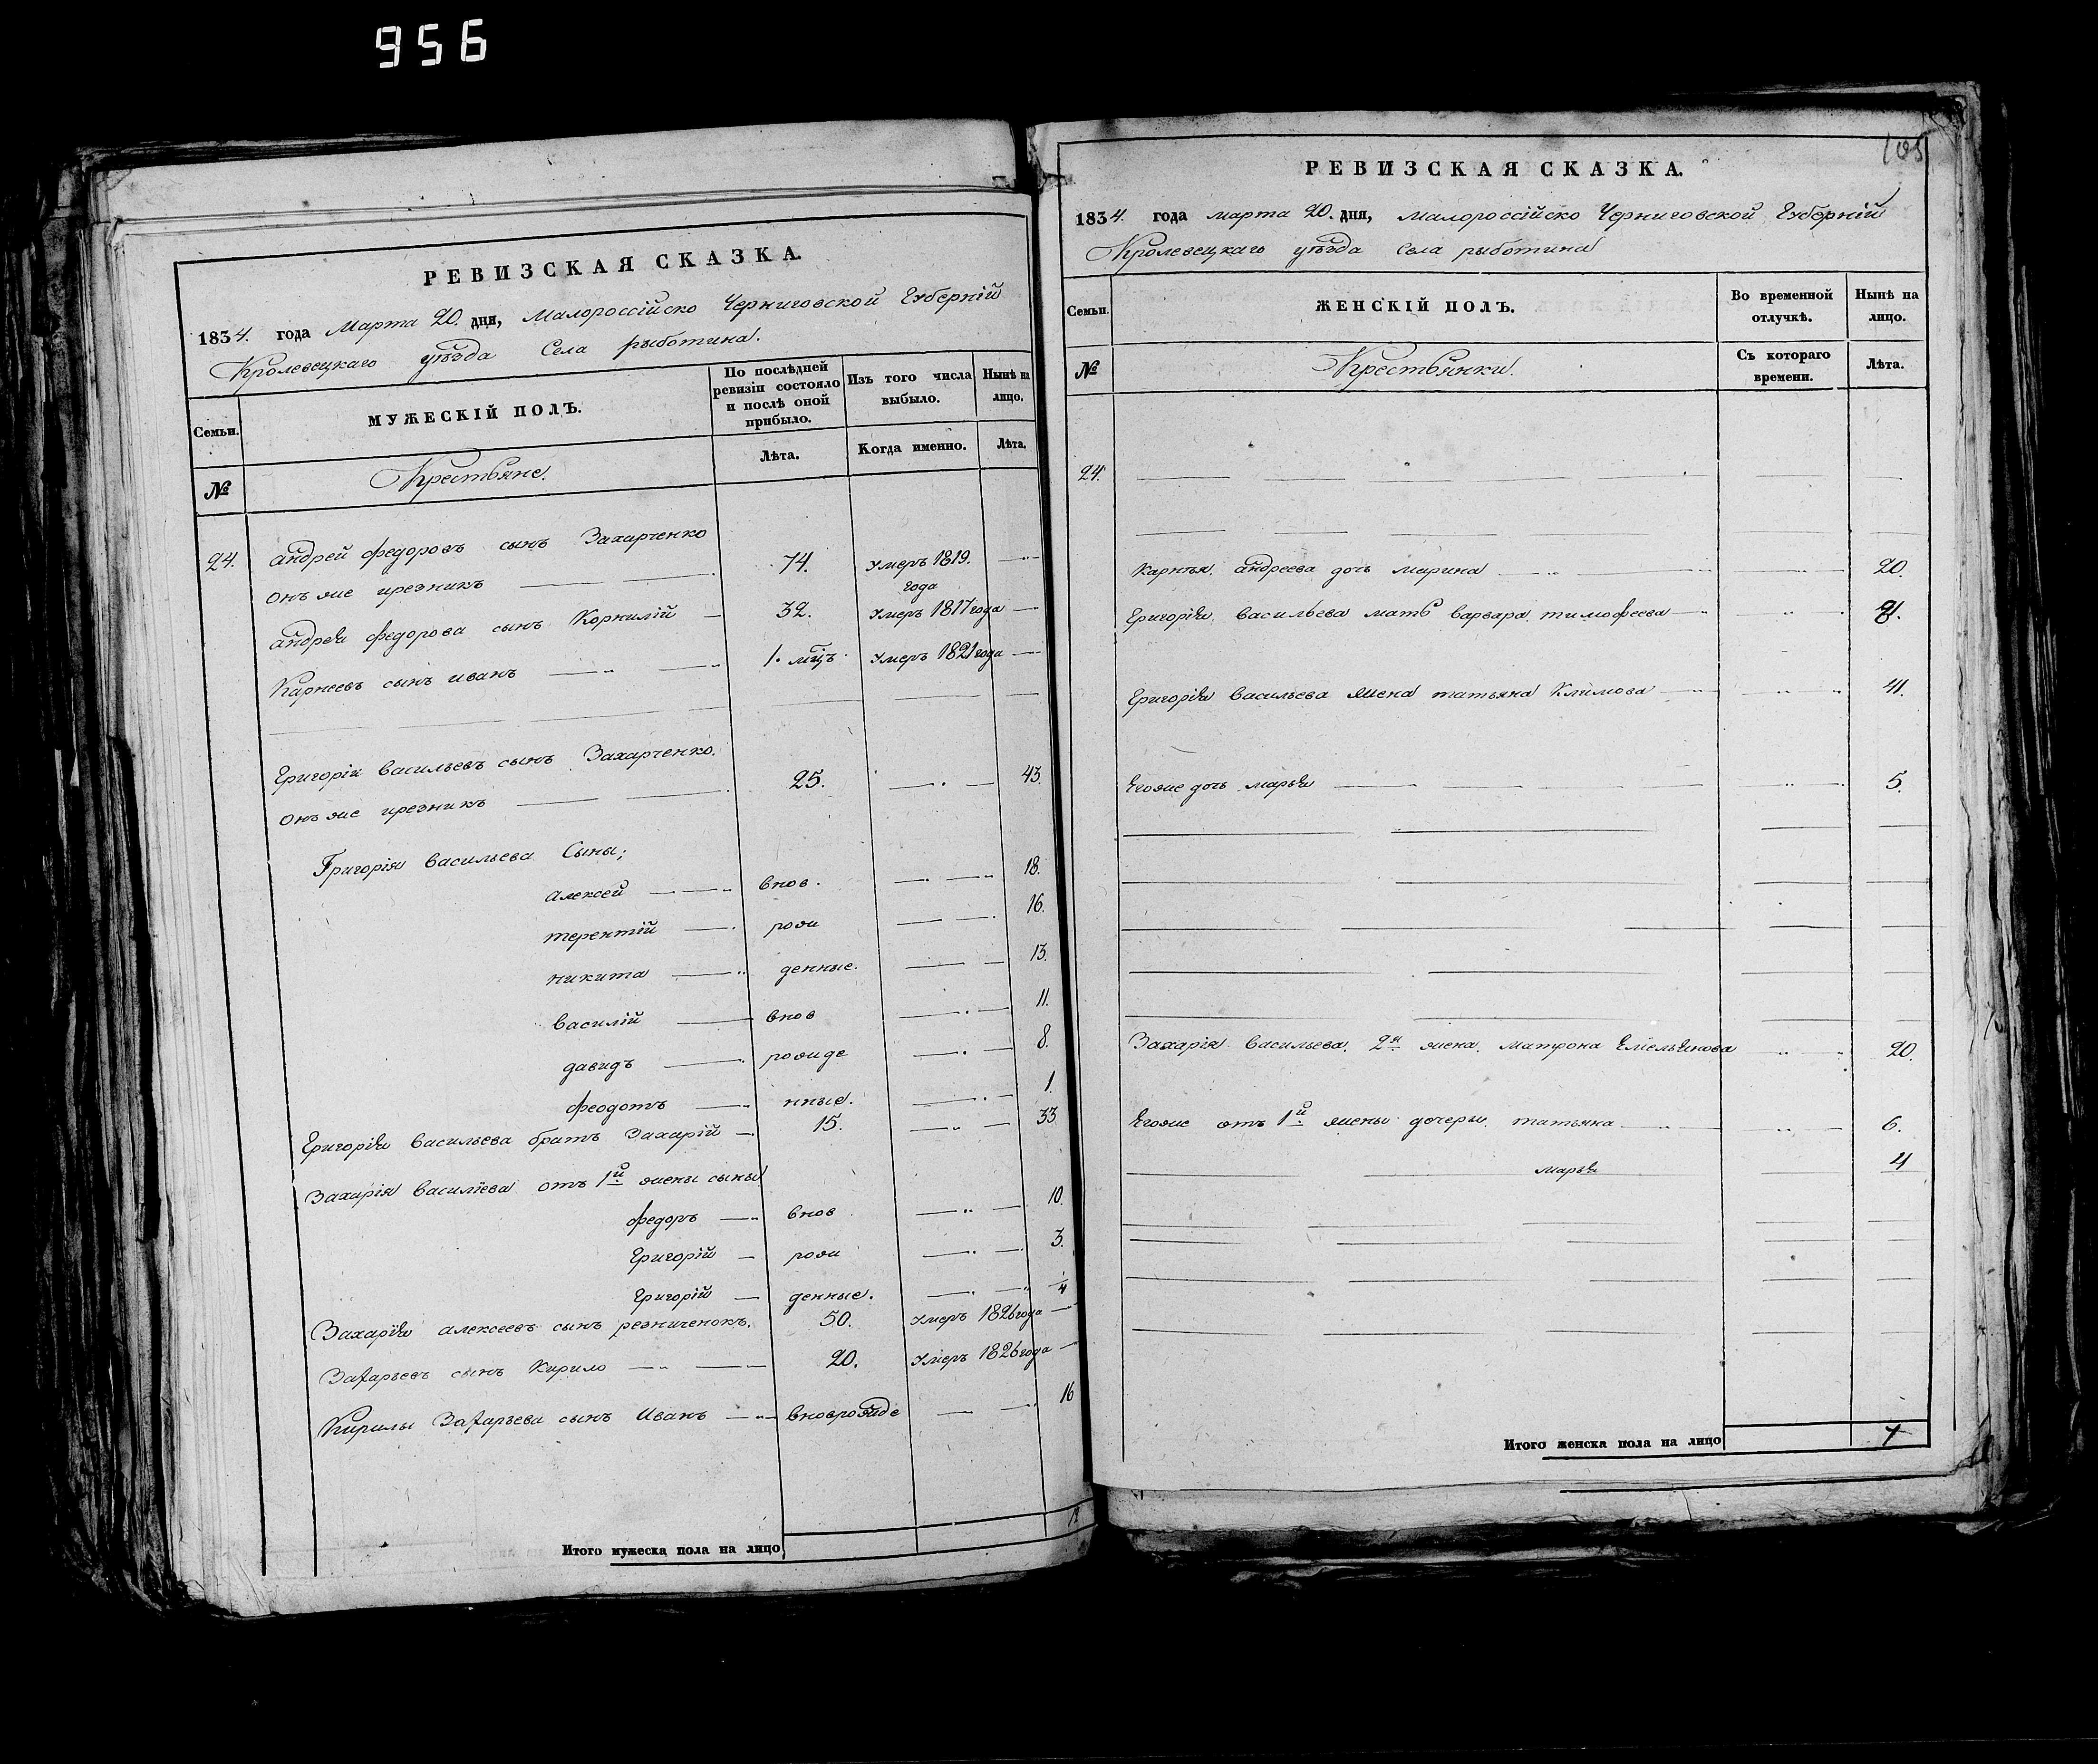 956
РЕВИЗСКАЯ СКАЗКА.
1834. года Марта 20. дня, Малороссійско Черниговской Губерніи
Кролевецкаго уѣзда Села рыботина.
Семьи.
МУЖЕСКІЙ ПОЛЪ.
По послѣдней ревизіи состояло и послѣ оной прибыло.
Изъ того числа выбыло.
Нынѣ на лицо.
№
Крестьяне.
Лѣта.
Когда именно.
Лѣта.
24. андрей федоровъ сынъ Захарченко
онъ же црезникъ 74. умеръ 1819. года
андрея федорова сынъ Корнилій 32. умеръ 1817 года
Карнеевъ сынъ иванъ 1. мцъ. умеръ 1821 года
Григоріи васильевъ сынъ Захарченко.
онъ же црезникъ 25. 43.
Григорія васильева Сыны;
алексей внов. 18.
терентій рож 16.
никита денные. 13.
василій внов 11.
давидъ рожде 8.
феодотъ нные. 1.
Григорія васильева братъ Захарій 15. 33
Захарія василіева отъ 1й жены сыны
федоръ внов 10.
Григорій рож 3.
Григорій денные. 1/4
Захарія алексеевъ сынъ резниченокъ. 50. умеръ 1826 года
Захарьевъ сынъ Кирило 20. умеръ 1826 года
Кирилы Захарьева сынъ Иванъ вноврожде 16
Итого мужеска пола на лицо 12
105
РЕВИЗСКАЯ СКАЗКА.
1834. года марта 20. дня, малороссійско Черниговской Губерніи
Кролевецкаго уѣзда Села рыботина
Семьи.
ЖЕНСКІЙ ПОЛЪ.
Во временной отлучкѣ.
Нынѣ на лицо.
№
Крестьянки.
Съ котораго времени.
Лѣта.
24.
Карнѣя андреева дочь марина 20.
Григорія васильева мать варвара тимофеева
Григорія васильева жена татьяна Климова 41.
Егоже дочь марья 5.
Захарія васильева 2я жена матрона Емельянова 20.
Егоже отъ 1й жены дочеры татьяна 6.
марья 4
Итого женска пола на лицо 7